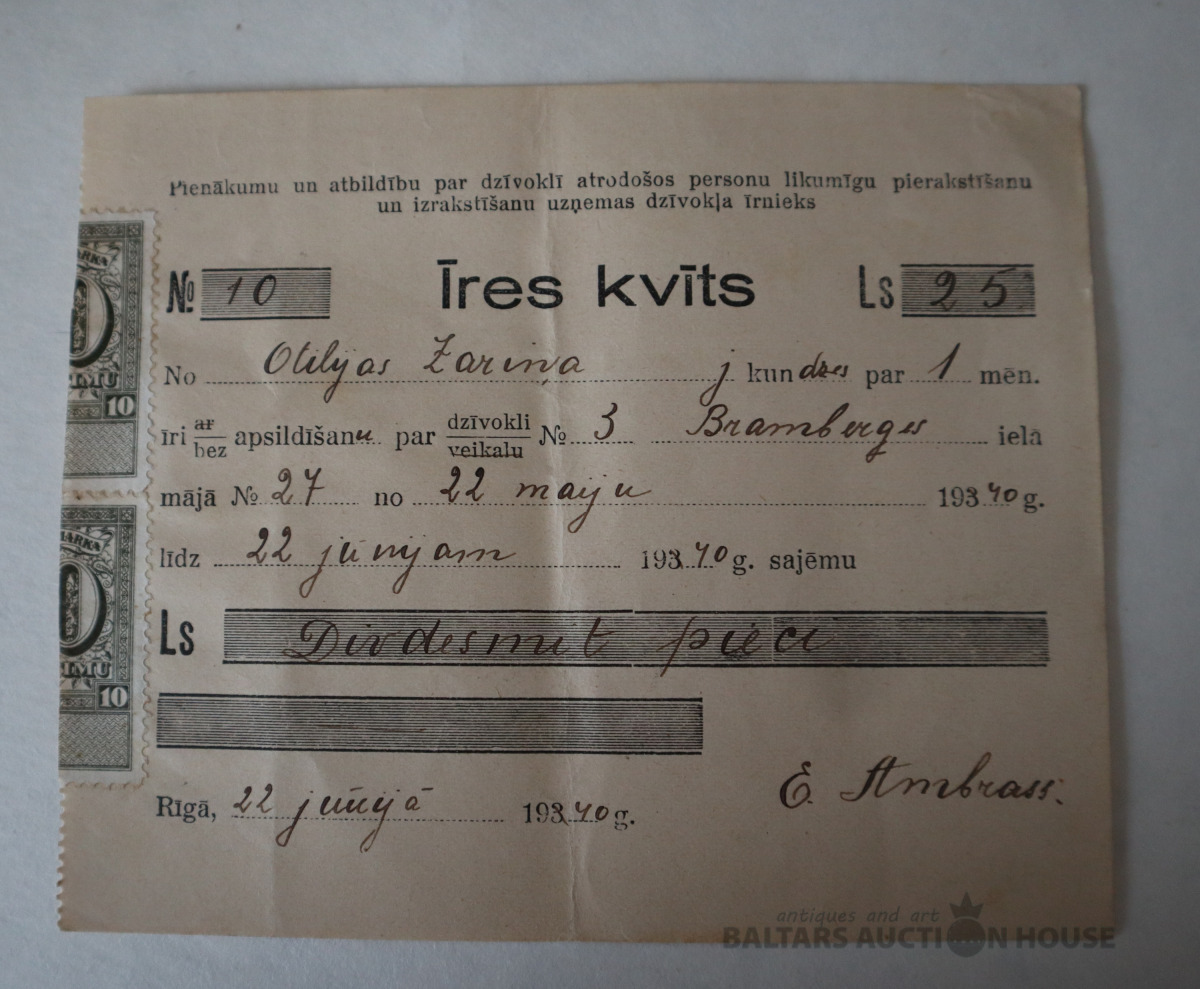 Pienākumu un atbildību par dzīvoklī atrodošos personu likumīgu pierakstīšanu
un izrakstīšanu uzņemas dzīvokļa īrnieks
№ 10 Īres kvīts Ls 25
No Otilijas Zariņa j kundzes par 1 mēn.
īri ar/bez apsildīšanu par dzīvokli/veikalu № 3 Bramberges ielā
mājā № 27 no 22 maiju 19340 g.
līdz 22 jūnijam 19340 g. sajēmu
Ls Divdesmit pieci
Rīgā, 22 jūnijā 19340 g.
E. Ambrass.
MARKA
0
10
MARKA
0
10
antiques and art
BALTARS AUCTION HOUSE